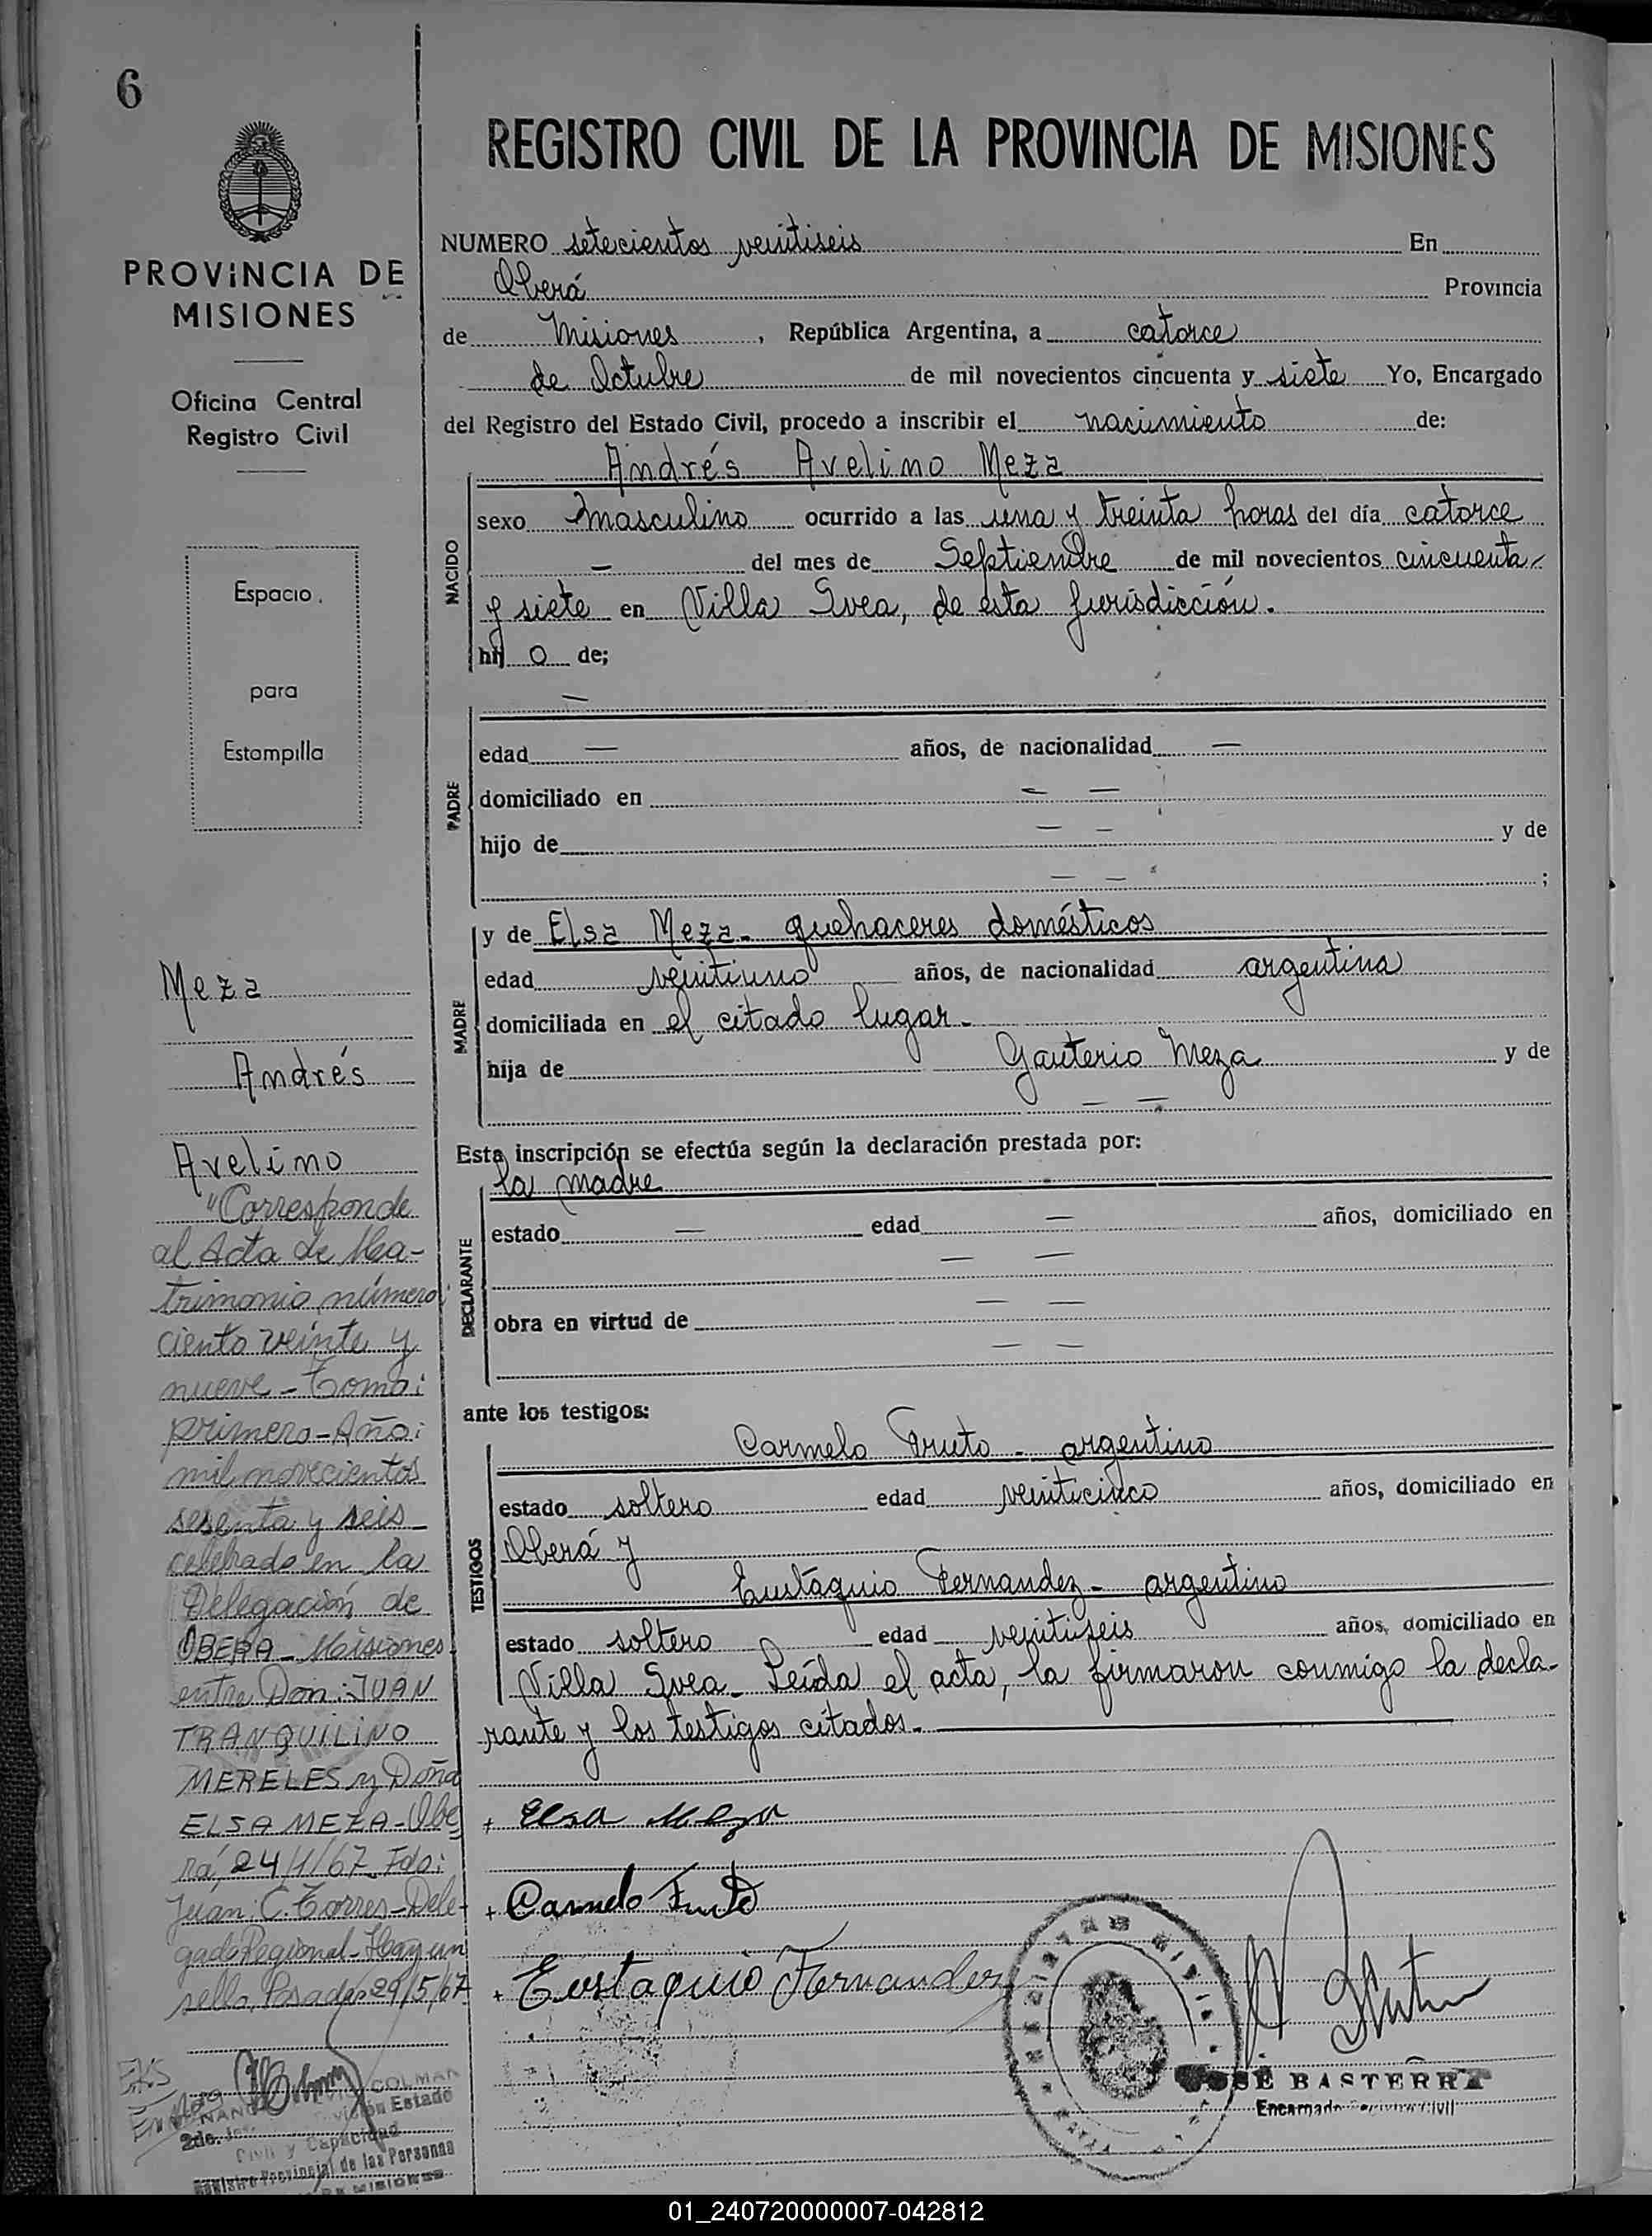 6
PROVINCIA DE
MISIONES
Oficina Central
Registro Civil
Espacio
para
Estampilla
Meza
Andrés
Avelino
"Corresponde
al Acta de Ma-
trimonio número
ciento veinte y
nueve - Tomo:
primero - Año:
mil novecientos
sesenta y seis
celebrado en la
Delegación de
OBERA - Misiones
entre Don: JUAN
TRANQUILINO
MERELES y Doña
ELSA MEZA - Obe
rá, 24/1/67 Fdo:
Juan C. Torres - Dele-
gado Regional - Hay un
sello, Posadas 29/5/67
COLMAN
2do.
Civil y Capacidad
Registro Provincial de las Personas
REGISTRO CIVIL DE LA PROVINCIA DE MISIONES
NUMERO setecientos veintiseis En
Oberá Provincia
de Misiones, República Argentina, a catorce
de Octubre de mil novecientos cincuenta y siete Yo, Encargado
del Registro del Estado Civil, procedo a inscribir el nacimiento de:
Andrés Avelino Meza
NACIDO
sexo masculino ocurrido a las una y treinta horas del día catorce
— del mes de Septiembre de mil novecientos cincuenta
y siete en Villa Svea, de esta jurisdicción.
hij o de;
PADRE
—
edad — años, de nacionalidad —
domiciliado en — —
hijo de — — y de
— — ;
MADRE
y de Elsa Meza - quehaceres domésticos
edad veintiuno años, de nacionalidad argentina
domiciliada en el citado lugar -
hija de Gauterio Meza y de
— —
Esta inscripción se efectúa según la declaración prestada por:
DECLARANTE
la madre
estado — edad — años, domiciliado en
— —
obra en virtud de — —
— —
ante los testigos:
TESTIGOS
Carmelo Fruto - argentino
estado soltero edad veinticinco años, domiciliado en
Oberá y
Eustaquio Fernandez - argentino
estado soltero edad veintiseis años, domiciliado en
Villa Svea - Leída el acta, la firmaron conmigo la decla-
rante y los testigos citados. —
+ Elsa Meza
+ Carmelo Fruto
+ Eustaquio Fernandez
JOSÉ BASTERRA
Encargado Registro Civil
01_240720000007-042812